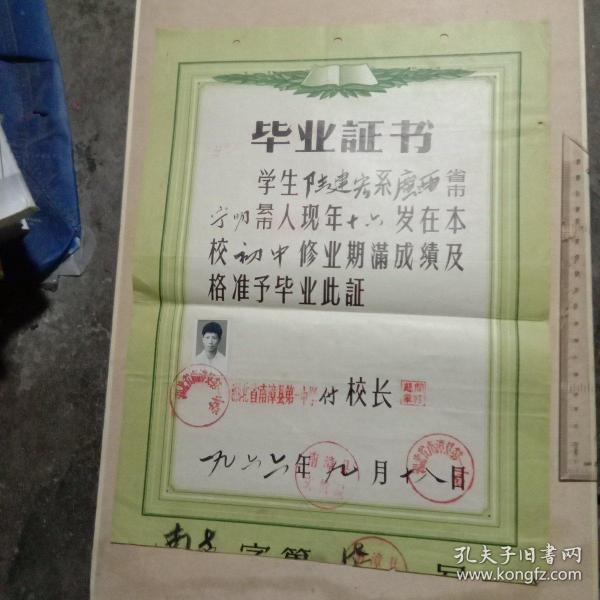 毕业証书
学生陆建宏系廣西省市
宁明县市人现年十六岁在本
校初中修业期滿成績及
格准予毕业此証
湖北省南漳县第一中学付校长
一九六六年九月十八日
南漳县
字第
号
孔夫子旧书网
www.kongfz.com